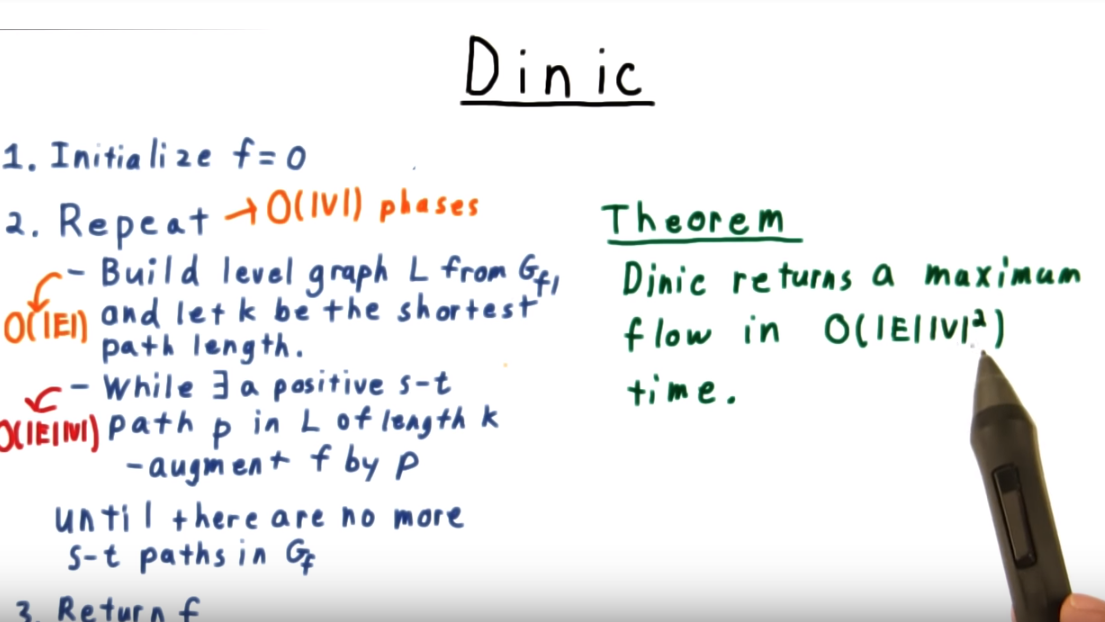 Dinic
1. Initialize f=0
2. Repeat → O(|V|) phases
- Build level graph L from G_f,
O(|E|) and let k be the shortest
path length.
- While ∃ a positive s-t
O(|E||V|) path p in L of length k
- augment f by p
until there are no more
s-t paths in G_f
3. Return f
Theorem
Dinic returns a maximum
flow in O(|E||V|²)
time.